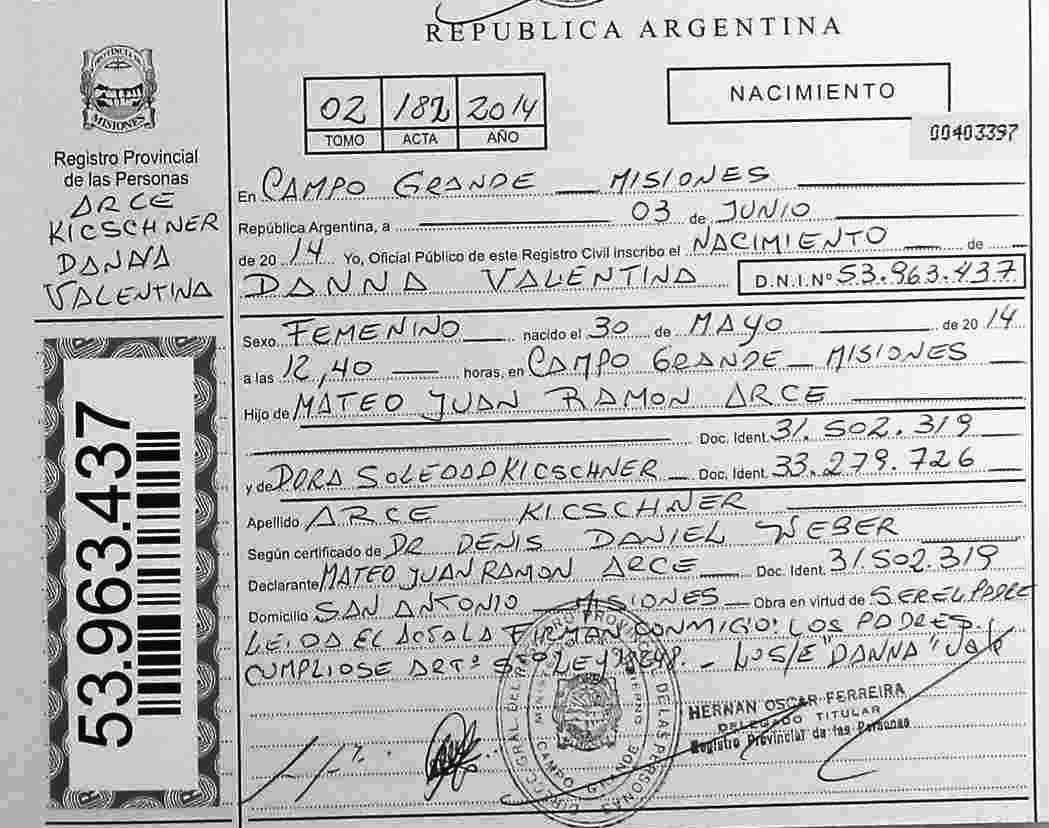 REPUBLICA ARGENTINA
PROVINCIA DE
MISIONES
Registro Provincial
de las Personas
ARCE
KICSCHNER
DANNA
VALENTINA
53.963.437
02 182 2014
TOMO ACTA AÑO
NACIMIENTO
00403397
En CAMPO GRANDE MISIONES
República Argentina, a 03 de JUNIO
de 20 14 Yo, Oficial Público de este Registro Civil inscribo el NACIMIENTO de
DANNA VALENTINA D.N.I.Nº 53.963.437
Sexo FEMENINO nacido el 30 de MAYO de 20 14
a las 12,40 horas, en CAMPO GRANDE MISIONES
Hijo de MATEO JUAN RAMON ARCE
Doc. Ident. 31.502.319
y de DORA SOLEDAD KICSCHNER Doc. Ident. 33.279.726
Apellido ARCE KICSCHNER
Según certificado de DR DENIS DANIEL WEBER
Declarante MATEO JUAN RAMON ARCE Doc. Ident. 31.502.319
Domicilio SAN ANTONIO MISIONES Obra en virtud de SER EL PADRE
LEIDA EL ACTA LA FIRMAN CONMIGO: LOS PADRES.
CUMPLIOSE ART: LEY - "DANNA" Vale
HERNAN OSCAR FERREIRA
DELEGADO TITULAR
Registro Provincial de las Personas
CAMPO GRANDE